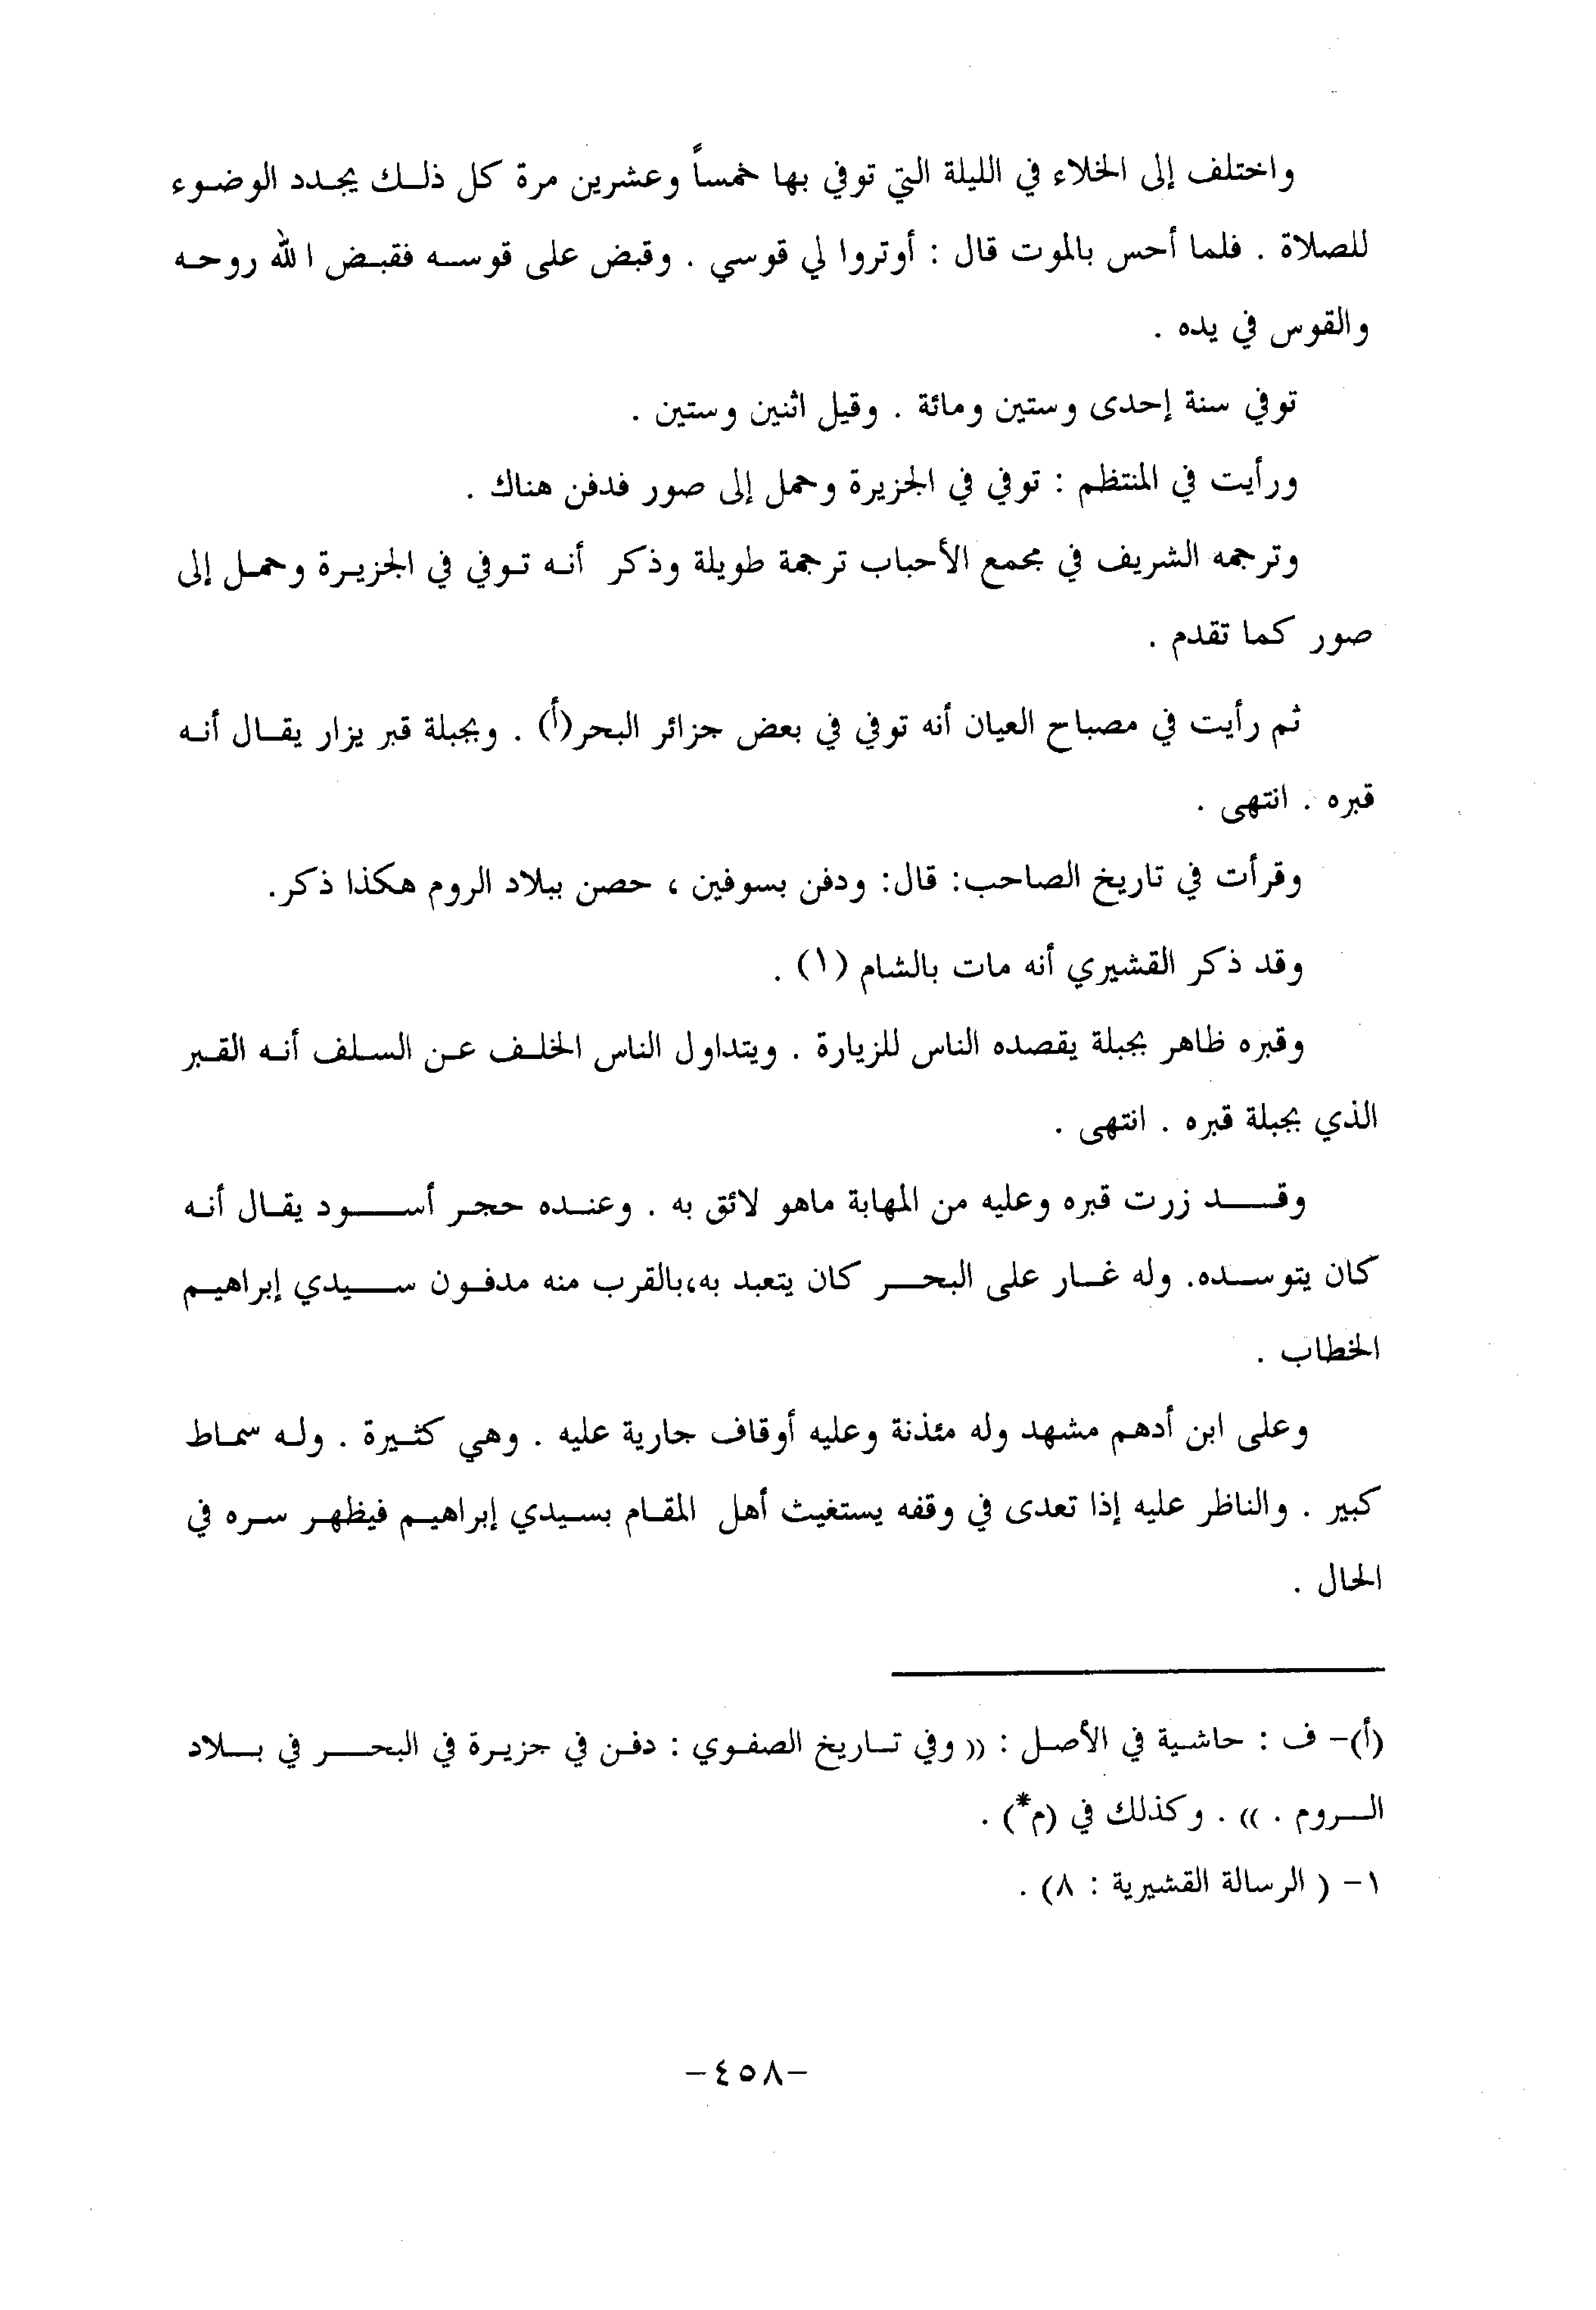 واختلف إلى الخلاء في الليلة التي توفي بها خمساً وعشرين مرة كل ذلك يجدد الوضوء
للصلاة . فلما أحس بالموت قال : أوتروا لي قوسي . وقبض على قوسه فقبض الله روحه
والقوس في يده .
توفي سنة إحدى وستين ومائة . وقيل اثنين وستين .
ورأيت في المنتظم : توفي في الجزيرة وحمل إلى صور فدفن هناك .
وترجمه الشريف في مجمع الأحباب ترجمة طويلة وذكر أنه توفي في الجزيرة وحمل إلى
صور كما تقدم .
ثم رأيت في مصباح العيان أنه توفي في بعض جزائر البحر(أ) . وبجبلة قبر يزار يقال أنه
قبره . انتهى .
وقرأت في تاريخ الصاحب: قال: ودفن بسوفين ، حصن ببلاد الروم هكذا ذكر.
وقد ذكر القشيري أنه مات بالشام (١) .
وقبره ظاهر بجبلة يقصده الناس للزيارة . ويتداول الناس الخلف عن السلف أنه القبر
الذي بجبلة قبره . انتهى .
وقد زرت قبره وعليه من المهابة ماهو لائق به . وعنده حجر أسود يقال أنه
كان يتوسده. وله غار على البحر كان يتعبد به،بالقرب منه مدفون سيدي إبراهيم
الخطاب .
وعلى ابن أدهم مشهد وله مئذنة وعليه أوقاف جارية عليه . وهي كثيرة . وله سماط
كبير . والناظر عليه إذا تعدى في وقفه يستغيث أهل المقام بسيدي إبراهيم فيظهر سره في
الحال .
(أ)- ف : حاشية في الأصل : (( وفي تاريخ الصفوي : دفن في جزيرة في البحر في بلاد
الروم . )) . وكذلك في (م*) .
١- ( الرسالة القشيرية : ٨) .
-٤٥٨-